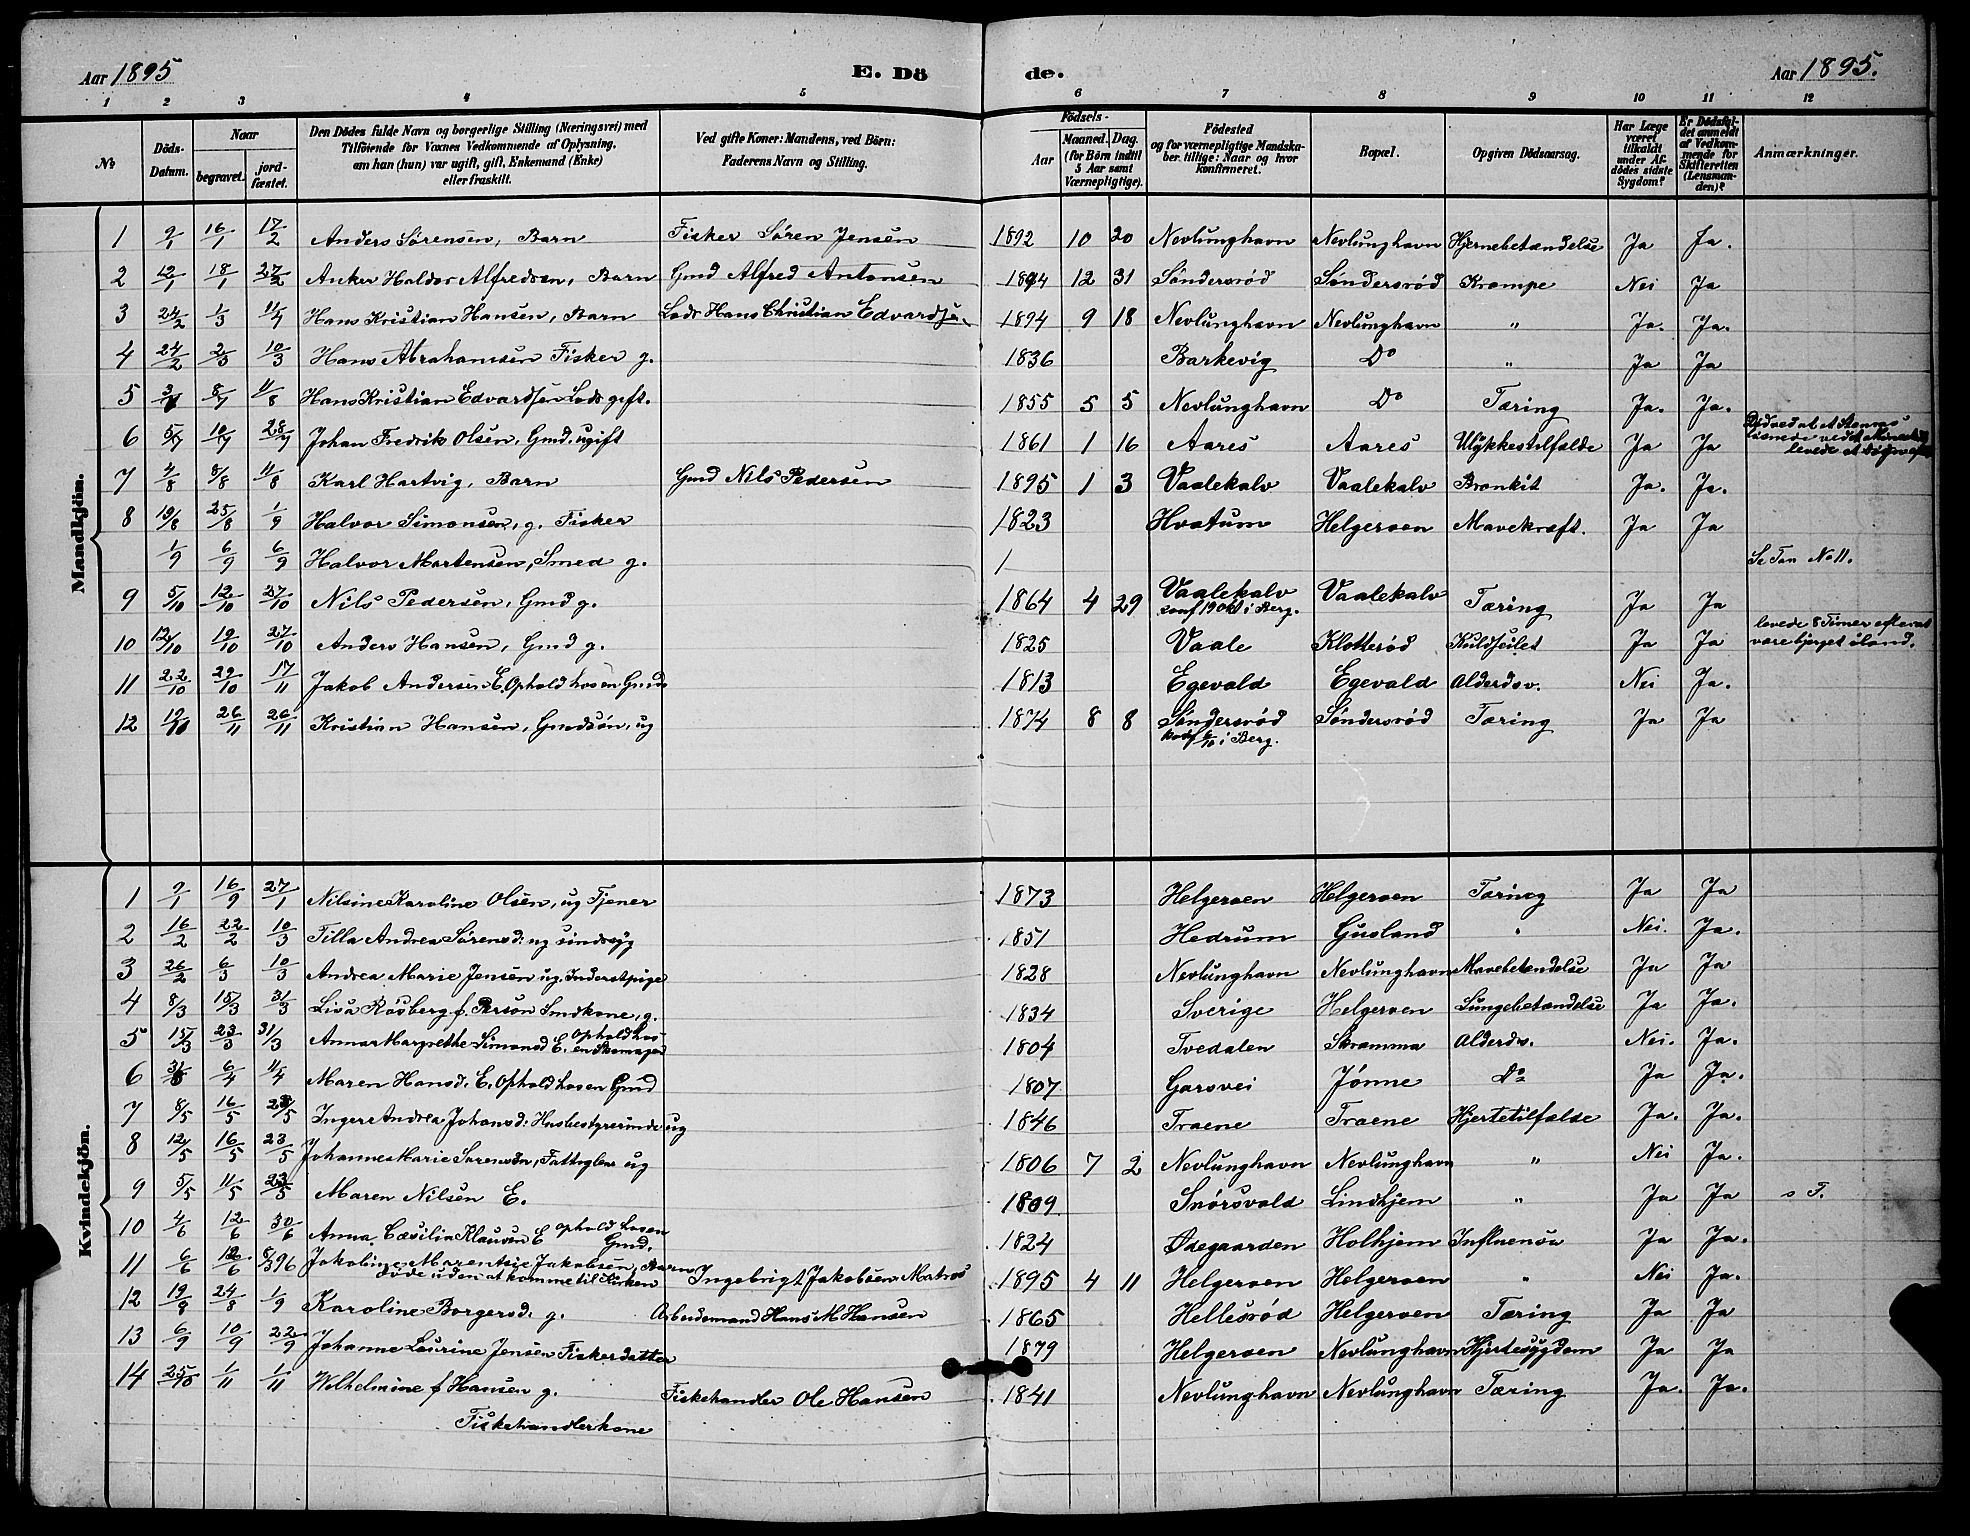 Aar 1895 E. Dö de. Aar 1895.
1 2 3 4 5 6 7 8 9 10 11 12
No Döds-Datum. Naar begravet. jordfæstet. Den Dödes fulde Navn og borgerlige Stilling (Næringsvei) med Tilföiende for Voxnes Vedkommende af Oplysning, om han (hun) var ugift, gift, Enkemand (Enke) eller fraskilt. Ved gifte Koner: Mandens, ved Börn: Faderens Navn og Stilling. Födsels- Aar Maaned. Dag. (for Börn indtil 5 Aar samt Værnepligtige). Födested og for værnepligtige Mandskaber tillige: Naar og hvor konfirmeret. Bopæl. Opgiven Dödsaarsag. Har Læge været tilkaldt under Afdödes sidste Sygdom? Er Dödsfaldet anmeldt af Vedkommende for Skifteretten (Lensmanden)? Anmærkninger.
Mandkjön.
1 9/1 16/1 17/2 Anders Sörensen, Barn Fisker Sören Jensen 1892 10 20 Nevlunghavn Nevlunghavn Hjernebetændelse Ja Ja.
2 12/1 18/1 27/2 Anker Haldor Alfredsen, Barn Gmd Alfred Antonsen 1894 12 31 Søndersrød Søndersrød Krampe Nei Ja
3 24/2 1/3 11/4 Hans Kristian Hansen, Barn Lods Hans Christian Edvardsen 1894 9 18 Nevlunghavn Nevlunghavn " Ja. Ja.
4 24/2 2/3 10/3 Hans Abrahamsen Fisker g. 1836 Barkevig Do " Ja Ja
5 8/7 11/8 Hans Kristian Edvardsen Lods gift. 1855 5 5 Nevlunghavn Do Tæring Ja. Ja.
6 5/7 10/7 28/7 Johan Fredrik Olsen, Gmd. ugift 1861 1 16 Aares Aares Ulykkestilfælde Ja Ja
levede et Døgn
7 4/8 8/8 11/8 Karl Hartvig, Barn Gmd Nils Pedersen 1895 1 3 Vaalekalv Vaalekalv Bronkit Ja. Ja.
8 19/8 25/8 1/9 Halvor Simonsen, g. Fisker 1823 Hvatum Helgeroen Mavekræft. Ja Ja
1/9 6/9 6/9 Halvor Martensen, Smed g. 1 Se No 11.
9 5/10 12/10 27/10 Nils Pedersen, Gmd g. 1864 4 29 Vaalekalv Vaalekalv Tæring Ja Ja
i Berg.
10 12/10 19/10 27/10 Anders Hansen, Gmd g. 1825 Vaale Klotterød Kuldseilet Ja Ja levede 8 Timer efter at
være bjerget iland.
11 22/10 29/10 17/11 Jakob Andersen E. Ophold hos en Gmd 1813 Egevald Egevald Alderdsv. Nei Ja.
12 19/10 26/11 26/11 Kristian Hansen, Gmdssön, ug 1874 8 8 Søndersrød Søndersrød Tæring Ja Ja
i Berg.
Kvindekjön.
1 9/1 16/9 27/1 Nilsine Karoline Olsen, ug Tjener 1873 Helgeroen Helgeroen Tæring Ja Ja
2 16/2 22/2 10/3 Tilla Andrea Sörensd: ug sindssyg 1851 Hedrum Gusland " Nei. Ja.
3 26/2 6/3 10/3 Andrea Marie Jensen ug. Inderstpige 1828 Nevlunghavn Nevlunghavn Mavebetændelse Ja Ja
4 8/3 15/3 31/3 Lisa Rosberg f. Person Smedkone, g. 1834 Sverige Helgeroen Lungebetændelse Ja Ja.
5 15/3 23/3 31/3 Anna Margrethe Simonsd E. Ophold hos
1804 Tvedalen Skramma Alderdsv. Nei. Ja.
6 6/4 11/4 Maren Hansd. E. Ophold hos en Gmd 1807 Garsvei Jønne Do Ja Ja.
7 8/5 16/5 23/5 Inger Andrea Johansd: Husbestyrerinde ug 1846 Traene Traene Hjertetilfælde Ja. Ja.
8 12/5 16/5 23/5 Johanne Marie Sørensen, Fattiglem ug 1806 7 2 Nevlunghavn Nevlunghavn " Nei Ja.
9 5/5 11/5 23/5 Maren Nilsen E. 1809 Snørsvold Lindhjem " Ja Ja s F.
10 4/6 12/6 30/6 Anna Cæsilia Klausen E Ophold hos en
Gmd. 1824 Ødegaarden Holhjem Influensa Ja Ja
11 6/6 12/6 8/3 96 Jakobine Marentsie Jakobsen, Barn Ingebrigt Jakobsen Matros 1895 4 11 Helgeroen Helgeroen " Nei Ja.
døde uden at komme til Kirken
12 19/8 24/8 1/9 Karoline Borgersd. g. Arbeidsmand Hans M Hansen 1865 Hellesrød Helgeroen Tæring Ja Ja
13 6/9 10/9 22/9 Johanne Laurine Jensen Fiskerdatter 1879 Helgeroen Nevlunghavn Hjertesygdom Ja Ja
14 25/10 1/11 1/11 Wilhelmine f Hansen g. Fiskehandler Ole Hansen 1841 Nevlunghavn Nevlunghavn Tæring Ja. Ja.
Fiskehandlerkone